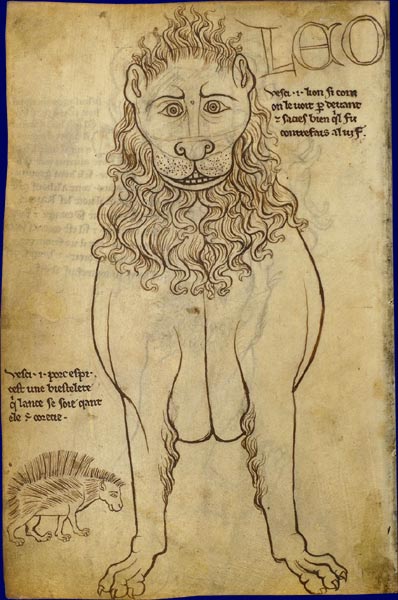 LEO
Vesci · i · lion si com
on le voit p devant
⁊ sacies bien ql fu
contrefais al vif.
Vesci · i · porc espi ·
cest une biestelete
q lance se soie qant
ele ē corecie ·